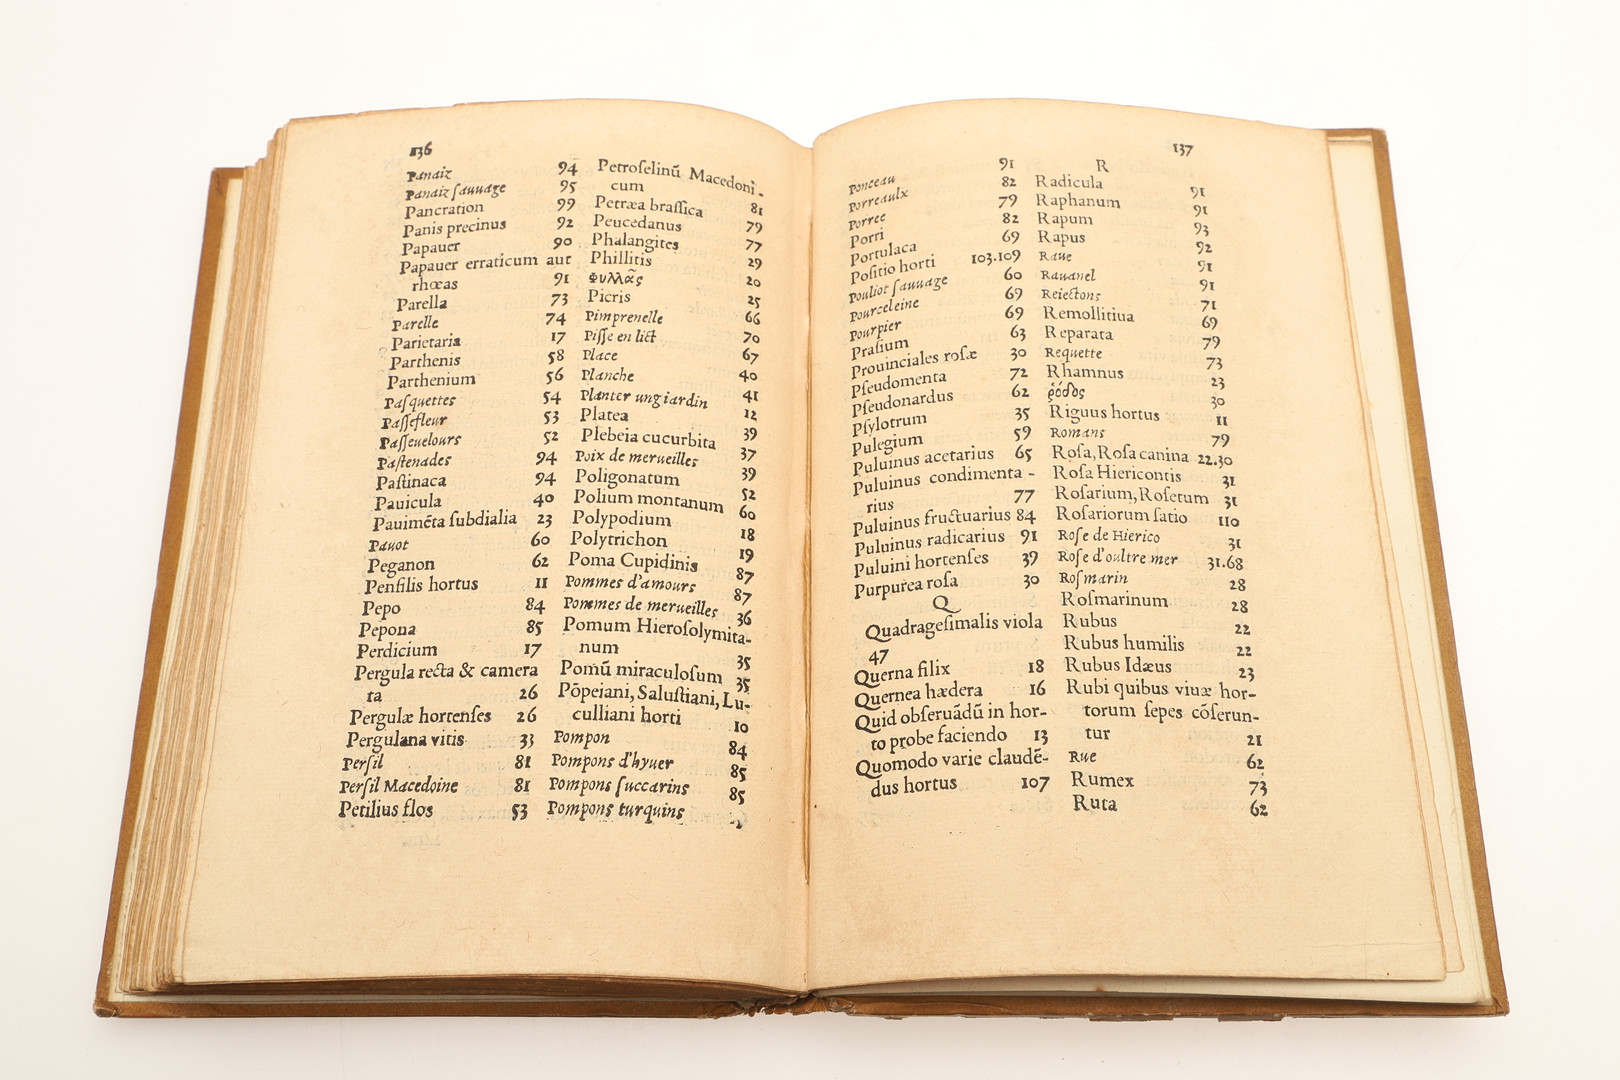 136
Panaiz 94
Panaiz ſauuage 95
Pancration 99
Panis precinus 92
Papauer 90
Papauer erraticum aut
rhœas 91
Parella 73
Parelle 74
Parietaria 17
Parthenis 58
Parthenium 56
Paſquettes 54
Paſſefleur 53
Paſſeuelours 52
Paſtenades 94
Paſtinaca 94
Pauicula 40
Pauimẽta ſubdialia 23
Pauot 60
Peganon 62
Penſilis hortus 11
Pepo 84
Pepona 85
Perdicium 17
Pergula recta & camera
ta 26
Pergulæ hortenſes 26
Pergulana vitis 33
Perſil 81
Perſil Macedoine 81
Petilius flos 53
Petroſelinũ Macedoni-
cum 81
Petræa braſſica 79
Peucedanus 77
Phalangites 29
Phillitis 20
Φυλλᾶς 25
Picris 66
Pimprenelle 70
Piſſe en lict 67
Place 40
Planche 41
Planter ung iardin 12
Platea 39
Plebeia cucurbita 37
Poix de merueilles 39
Poligonatum 52
Polium montanum 60
Polypodium 18
Polytrichon 19
Poma Cupidinis 87
Pommes d'amours 87
Pommes de merueilles 36
Pomum Hieroſolymita-
num 35
Pomũ miraculoſum 35
Põpeiani, Saluſtiani, Lu-
culliani horti 10
Pompon 84
Pompons d'hyuer 85
Pompons ſuccarins 85
Pompons turquins
137
Ponceau 91
Porreaulx 82
Porree 79
Porri 82
Portulaca 69
Poſitio horti 103.109
Pouliot ſauuage 60
Pourceleine 69
Pourpier 69
Praſium 63
Prouinciales roſæ 30
Pſeudomenta 72
Pſeudonardus 62
Pſylotrum 35
Pulegium 59
Puluinus acetarius 65
Puluinus condimenta-
rius 77
Puluinus fructuarius 84
Puluinus radicarius 91
Puluini hortenſes 39
Purpurea roſa 30
Q
Quadrageſimalis viola
47
Querna filix 18
Quernea hædera 16
Quid obſeruãdũ in hor-
to probe faciendo 13
Quomodo varie claudẽ-
dus hortus 107
R
Radicula 91
Raphanum 91
Rapum 93
Rapus 92
Raue 91
Rauanel 91
Reiectons 71
Remollitiua 69
Reparata 79
Requette 73
Rhamnus 23
ῥόδος 30
Riguus hortus 11
Romans 79
Roſa, Roſa canina 22.30
Roſa Hiericontis 31
Roſarium, Roſetum 31
Roſariorum ſatio 110
Roſe de Hierico 31
Roſe d'oultre mer 31.68
Roſmarin 28
Roſmarinum 28
Rubus 22
Rubus humilis 22
Rubus Idæus 23
Rubi quibus viuæ hor-
torum ſepes cõſerun-
tur 21
Rue 62
Rumex 73
Ruta 62